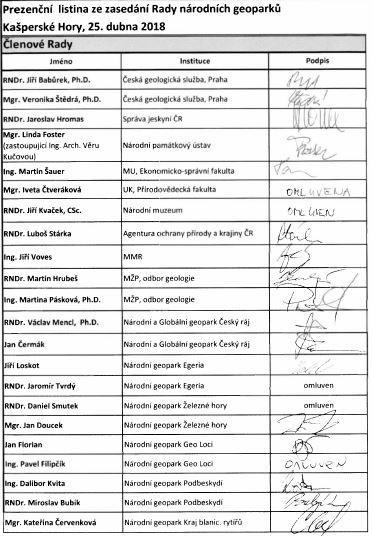 Prezenční listina ze zasedání Rady národních geoparků
Kašperské Hory, 25. dubna 2018
Členové Rady
Jméno Instituce Podpis
RNDr. Jiří Babůrek, Ph.D. Česká geologická služba, Praha
Mgr. Veronika Štědrá, Ph.D. Česká geologická služba, Praha
RNDr. Jaroslav Hromas Správa jeskyní ČR
Mgr. Linda Foster
(zastoupující Ing. Arch. Věru
Kučovou) Národní památkový ústav
Ing. Martin Šauer MU, Ekonomicko-správní fakulta
Mgr. Iveta Čtveráková UK, Přírodovědecká fakulta OMLUVENA
RNDr. Jiří Kvaček, CSc. Národní museum OMLUVEN
RNDr. Luboš Stárka Agentura ochrany přírody a krajiny ČR
Ing. Jiří Voves MMR
RNDr. Martin Hrubeš MŽP, odbor geologie
Ing. Martina Pásková, Ph.D. MŽP, odbor geologie
RNDr. Václav Mencl, Ph.D. Národní a Globální geopark Český ráj
Jan Čermák Národní a Globální geopark Český ráj
Jiří Loskot Národní geopark Egeria
RNDr. Jaromír Tvrdý Národní geopark Egeria omluven
RNDr. Daniel Smutek Národní geopark Železné hory omluven
Mgr. Jan Doucek Národní geopark Železné hory
Jan Florian Národní geopark Geo Loci
Ing. Pavel Filipčík Národní geopark Geo Loci OMLUVEN
Ing. Dalibor Kvita Národní geopark Podbeskydí
RNDr. Miroslav Bubík Národní geopark Podbeskydí
Mgr. Kateřina Červenková Národní geopark Kraj blanic. rytířů